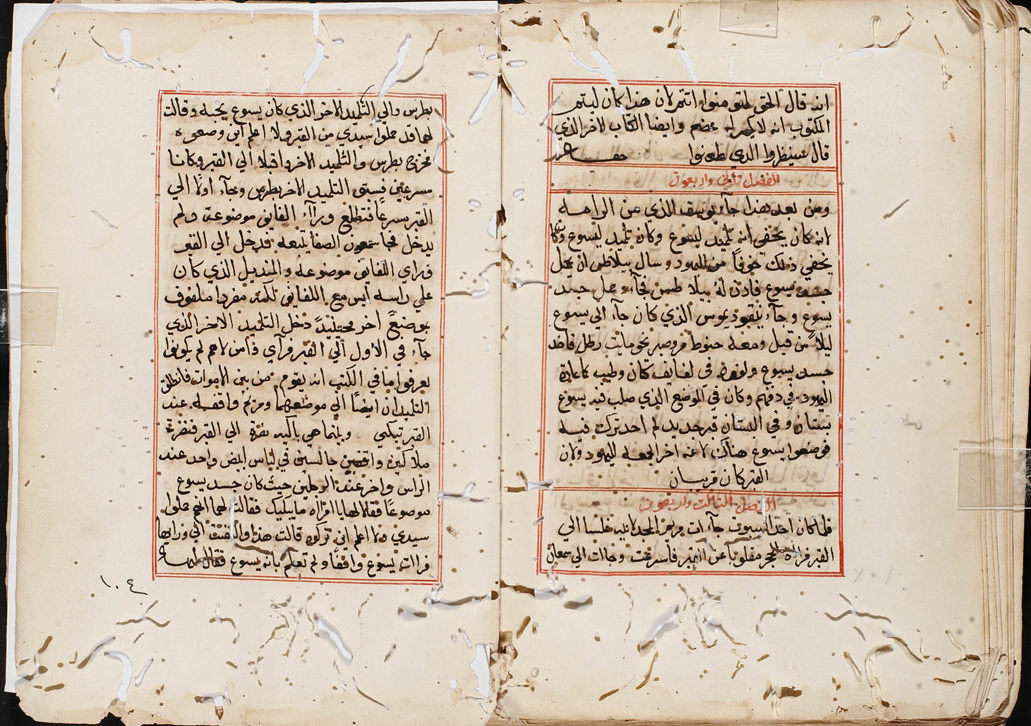 انه قال الحق لتومنوا انتم لان هذا كان ليتم
المكتوب انه لا يكسر له عضم وايضا الكتاب الاخر الذي
قال سينظروا الذي طعنوا
الفصل ثاني واربعون
ومن بعد هذا جآء يوسف الذي من الرامه
لانه كان يخفي انه تلميد ليسوع وكان تلميد ليسوع وكان
يخفي ذلك خوفًا من اليهود وسال بيلاطس ان يحمل
جسد يسوع فادن له بيلاطس فجآء وحمل جسد
يسوع وجآء نيقوديموس الذي كان جآء الي يسوع
ليلاً من قبل ومعه حنوط مر وصبر نحو مايت رطل فاخد
جسد يسوع ولفوه في لفايف كتان وطيب كاعادة
اليهود في دفنهم وكان في الموضع الذي صلب فيه يسوع
بستان وفي البستان قبر جديد لم احد ترك فيه
فوضعوا يسوع هناك لانه اخر الجمعه لليهود ولان
القبر كان قريبان
الفصل التالت واربعون
فلما كان احد السبوت جآءت مريم المجدلانيه غلسا الي
القبر فرات الحجر مقلوباً عن القبر فأسرعت وجات الي سمعان
بطرس والي التلميد الاخر الذي كان يسوع يحبه وقالت
لهما قد حملوا سيدي من القبر ولا اعلم اين وضعوه
فخرج بطرس والتلميد الاخر واقبلا الي القبر وكانا
مسرعين فسبق التلميد الاخر بطرس وجآء اولاً الي
القبر سرعاً فتطلع ورآء الفايف موضوعة ولم
يدخل فجا سمعون الصفا يتبعه فدخل الي القبر
فراي اللفايف موضوعة والمنديل الذي كان
علي راسه ليس مع اللفايف لكن مفرداً ملفوف
بموضع اخر دخل التلميد الاخر الذي
جآء في الاول الي القبر فرآي وآمن لانهم لم يكونوا
يعرفوا ما في الكتب انه يقوم من بين الاموات فانطلق
التلميدان ايضاً الي موضعهما ومريم واقفه عند
القبر تبكي وبينما هي باكيه نظرة الي القبر فنظرة
ملاكين جالسين في لباس ابيض واحد عند
الراس واخر عند الرجلين حيث كان جسد يسوع
موضوعاً فقالا لها يا امراه ما يبكيك فقالت لهما انهم حملوا
سيدي ولا اعلم اين تركوه قالت هذا والتفتت الي ورايها
فرات يسوع واقفاً ولم تعلم بانه يسوع فقال لها
١٠٤